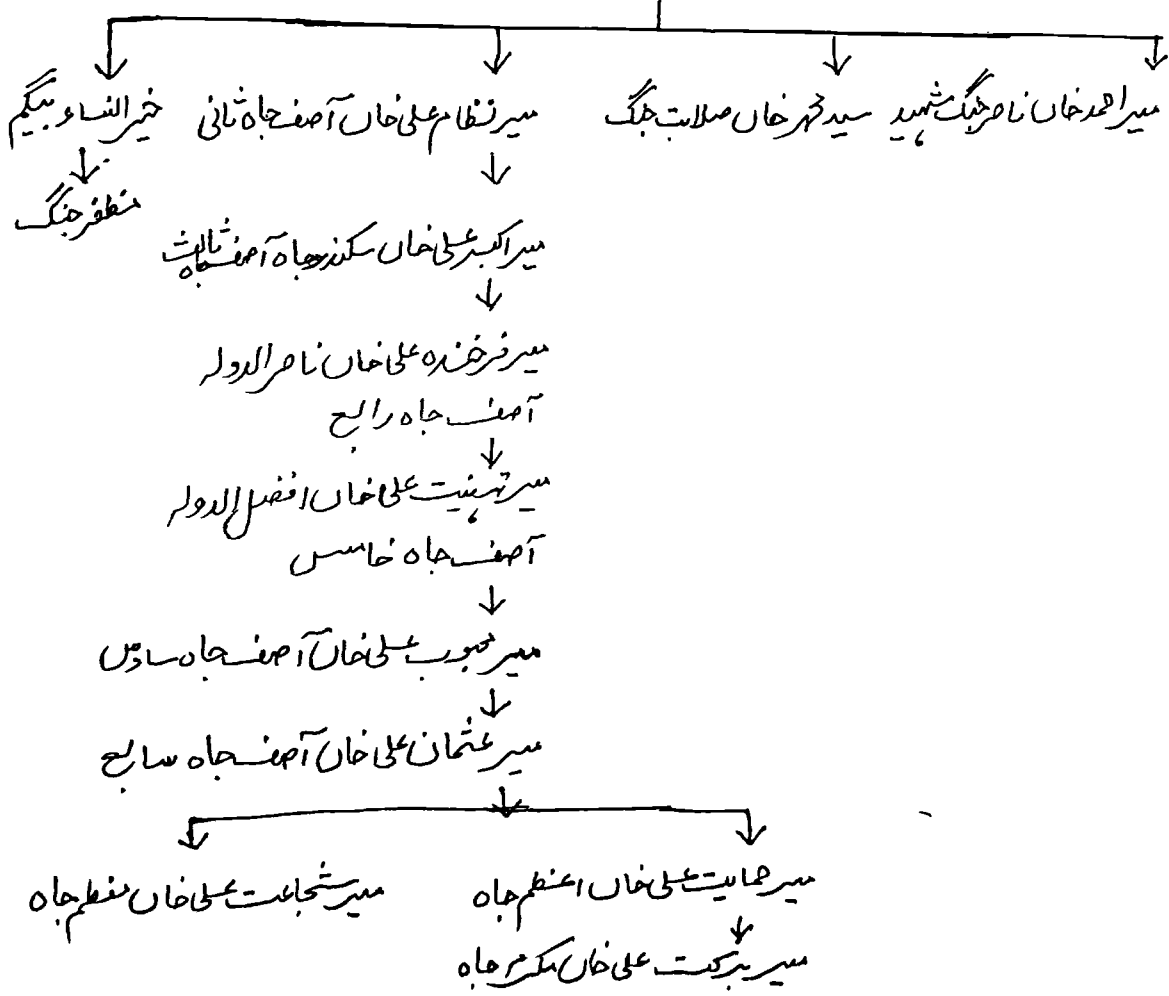 میر احمد خاں ناصر جنگ شہید سید محمد خاں صلابت جنگ میر نظام علی خاں آصف جاہ ثانی خیر النساء بیگم
مظفر جنگ
میر اکبر علی خاں سکندر جاہ آصف جاہ ثالث
میر فرخندہ علی خاں ناصر الدولہ
آصف جاہ رابع
میر تہنیت علی خاں افضل الدولہ
آصف جاہ خامس
میر محبوب علی خاں آصف جاہ سادس
میر عثمان علی خاں آصف جاہ سابع
میر حمایت علی خاں اعظم جاہ میر شجاعت علی خاں معظم جاہ
میر برکت علی خاں مکرم جاہ